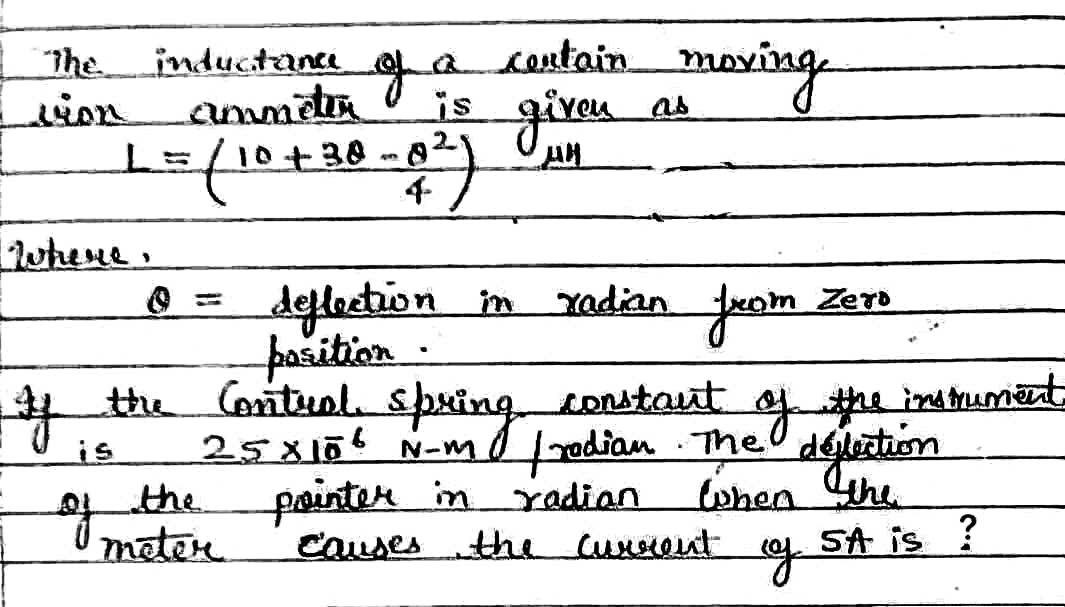 The inductance of a certain moving
iron ammeter is given as
L = (10 + 3θ - θ²/4) μH
Where,
θ = deflection in radian from zero
position.
If the Control spring constant of the instrument
is 25 × 10⁻⁶ N-m / radian. The deflection
of the pointer in radian when the
meter causes the current of 5A is ?